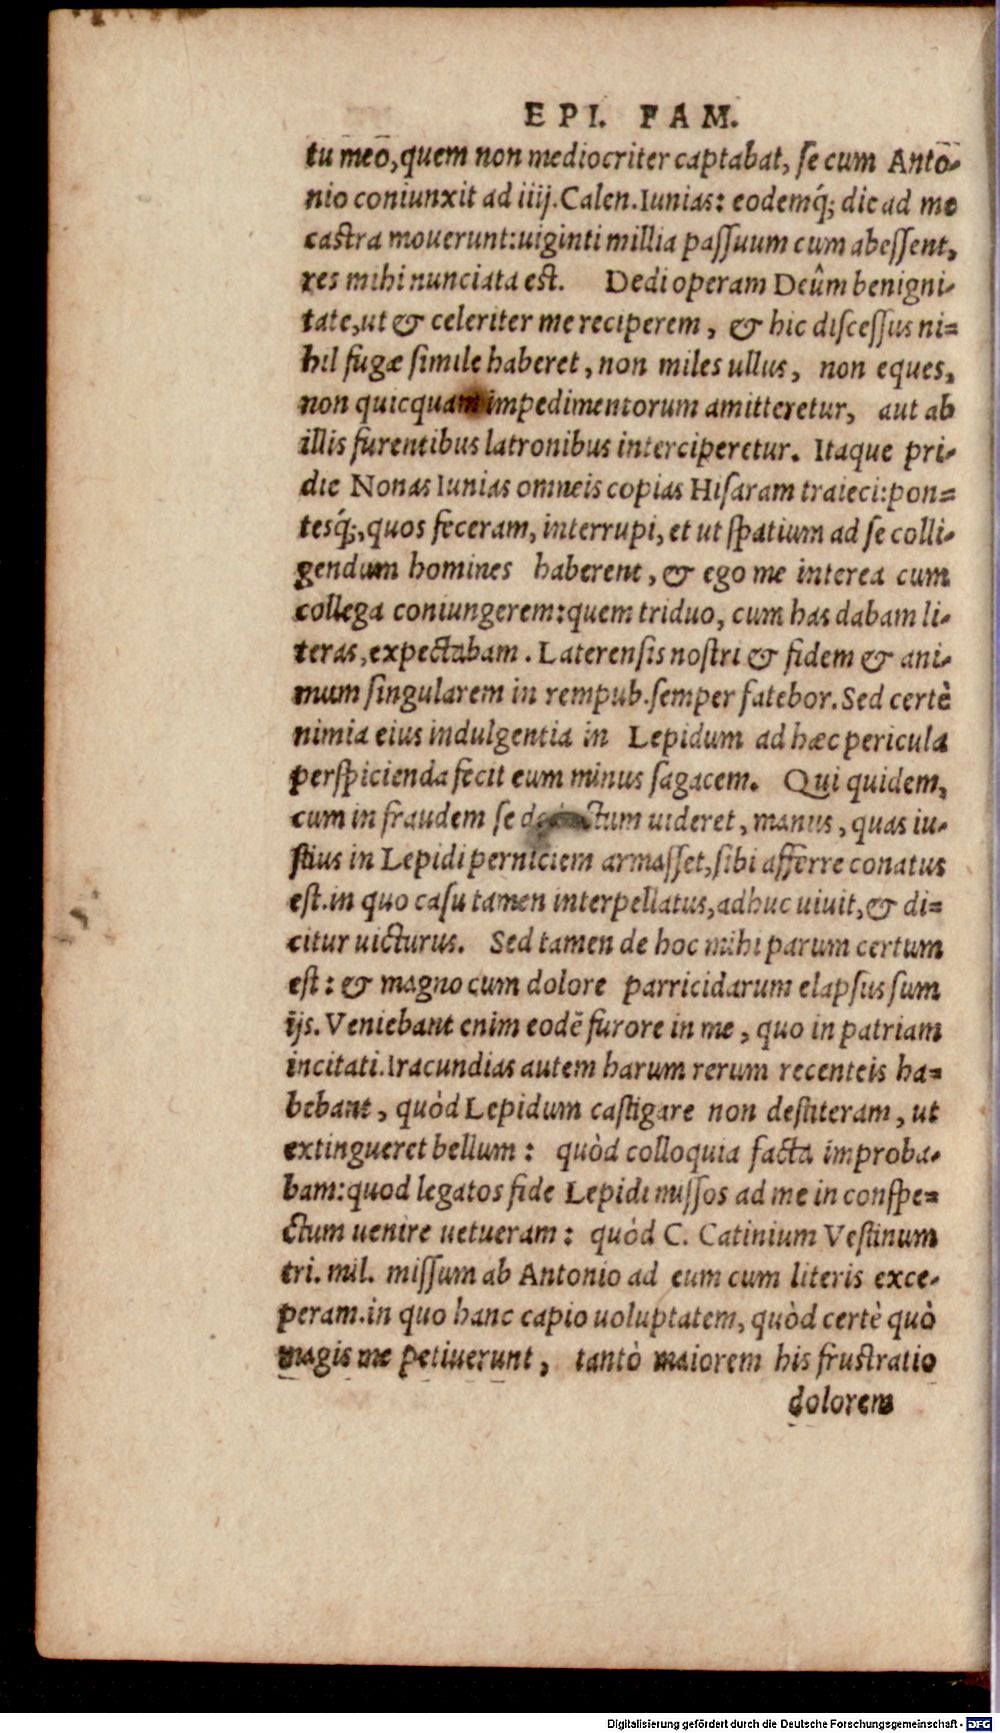 EPI. FAM.
tu meo, quem non mediocriter captabat, se cum Anto-
nio coniunxit ad iiij. Calen. Iunias: eodemq́; die ad me
castra mouerunt: uiginti millia passuum cum abessent,
res mihi nunciata est. Dedi operam Deûm benigni-
tate, ut & celeriter me reciperem, & hic discessus ni=
hil fugæ simile haberet, non miles ullus, non eques,
non quicquam impedimentorum amitteretur, aut ab
illis furentibus latronibus interciperetur. Itaque pri-
die Nonas Iunias omneis copias Hisaram traieci: pon=
tesq́;, quos feceram, interrupi, et ut spatium ad se colli-
gendum homines haberent, & ego me interea cum
collega coniungerem: quem triduo, cum has dabam li-
teras, expectabam. Laterensis nostri & fidem & ani-
mum singularem in rempub. semper fatebor. Sed certè
nimia eius indulgentia in Lepidum ad hæc pericula
perspicienda fecit eum minus sagacem. Qui quidem,
cum in fraudem se deductum uideret, manus, quas iu-
stius in Lepidi perniciem armasset, sibi afferre conatus
est. in quo casu tamen interpellatus, adhuc uiuit, & di=
citur uicturus. Sed tamen de hoc mihi parum certum
est: & magno cum dolore parricidarum elapsus sum
ijs. Veniebant enim eodē furore in me, quo in patriam
incitati. Iracundias autem harum rerum recenteis ha=
bebant, quòd Lepidum castigare non destiteram, ut
extingueret bellum: quòd colloquia facta improba-
bam: quod legatos fide Lepidi missos ad me in conspe=
ctum uenire uetueram: quòd C. Catinium Vestinum
tri. mil. missum ab Antonio ad eum cum literis exce-
peram. in quo hanc capio uoluptatem, quòd certè quò
magis me petiuerunt, tantò maiorem his frustratio
dolorem
Digitalisierung gefördert durch die Deutsche Forschungsgemeinschaft - DFG